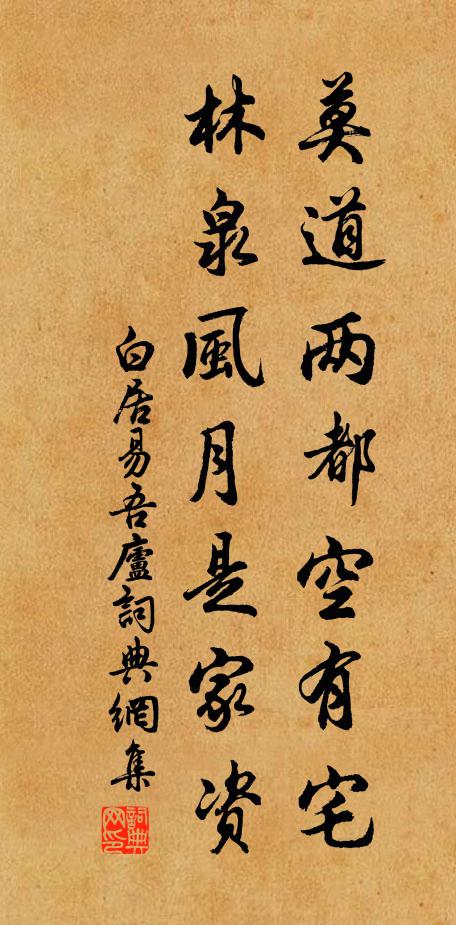 莫道两都空有宅
林泉風月是家资
白居易吾廬詞典網集
詞典网印